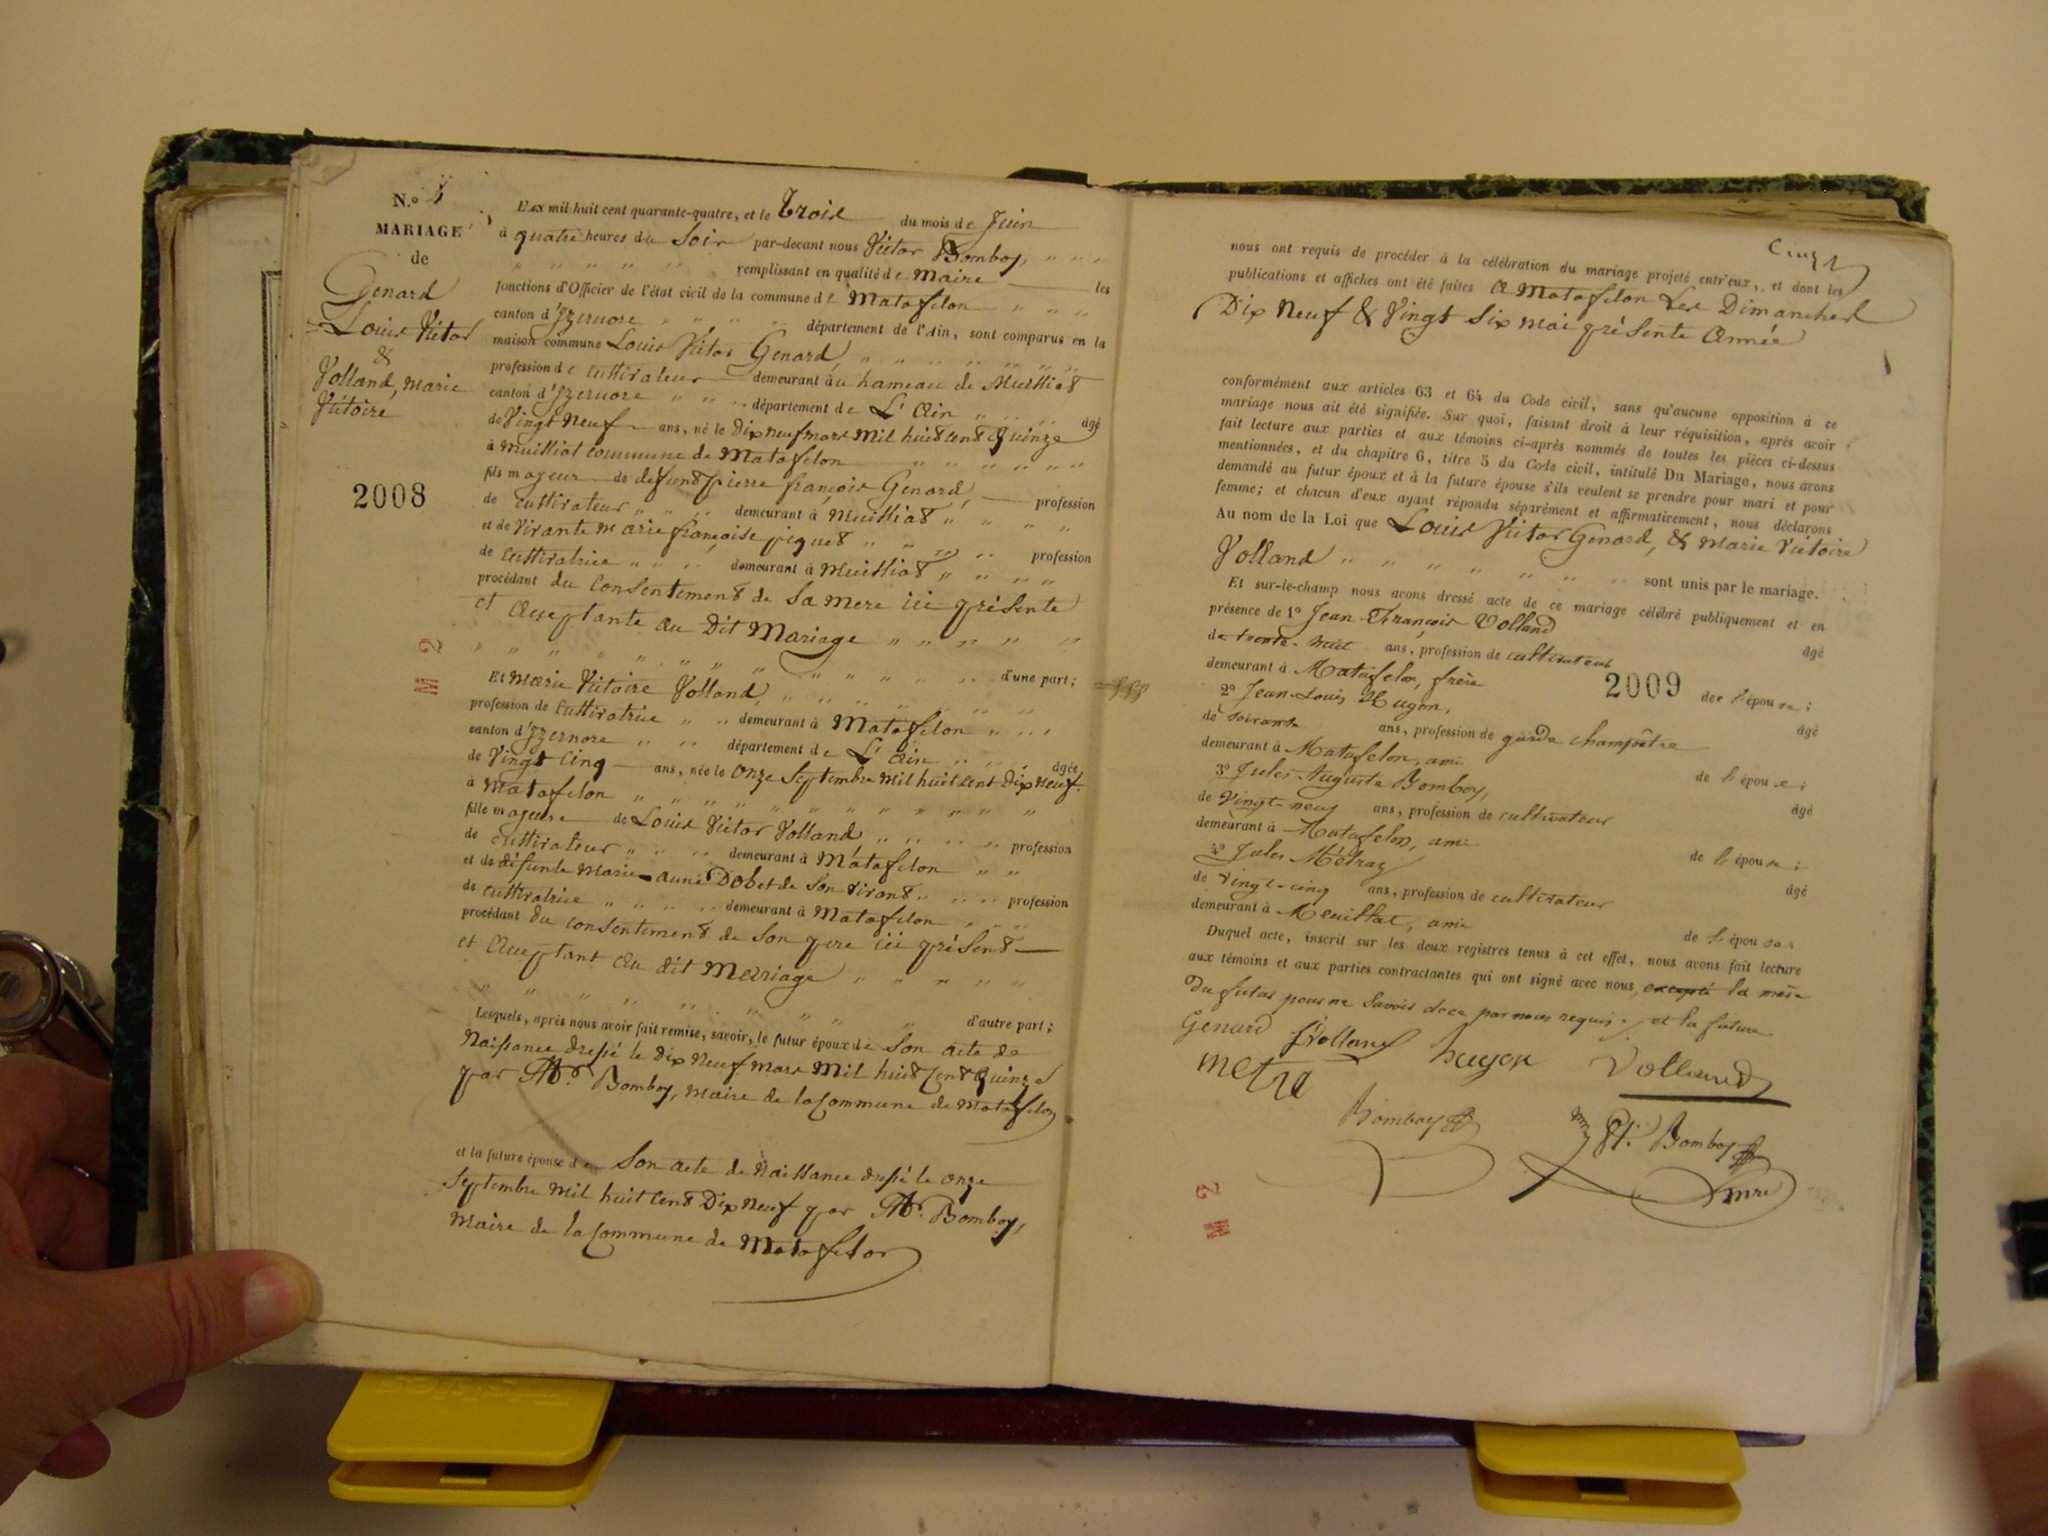 N.o 4
MARIAGE
de
Genard
Louis Victor
&
Volland, Marie
Victoire
2008
M 2
L'AN mil huit cent quarante-quatre, et le Trois du mois de Juin
à quatre heures du Soir par-devant nous Victor Bomboy,
remplissant en qualité de Maire les
fonctions d'Officier de l'état civil de la commune de Matafelon
canton d'Yzernore département de l'Ain, sont comparus en la
maison commune Louis Victor Genard,
profession de Cultivateur demeurant au hameau de Muisliat
canton d'Yzernore département de L'Ain âgé
de Vingt neuf ans, né le Dix neuf mars mil huit cent Quinze
à Muilliat commune de Matafelon
fils majeur de défunt pierre françois Genard, profession
de Cultivateur demeurant à Muilliat
et de Vivante Marie françoise piquet profession
de Cultivatrice demeurant à Muilliat
procédant du Consentement de Sa Mere ici présente
et Acceptante au Dit Mariage
d'une part;
Et Marie Victoire Volland,
profession de Cultivatrice demeurant à Matafelon
canton d'Yzernore département de L'Ain âgée
de Vingt Cinq ans, née le Onze Septembre mil huit cent Dix neuf
à Matafelon
fille majeure de Louis Victor Volland, profession
de Cultivateur demeurant à Matafelon
et de défunte Marie-anne Dobet de Son vivant profession
de Cultivatrice demeurant à Matafelon
procédant du consentement de Son pere ici présent
et Acceptant au dit Mariage
d'autre part;
Lesquels, après nous avoir fait remise, savoir, le futur époux de Son acte de
Naissance dressé le Dix Neuf mars Mil huit Cent Quinze
par Bomboy, Maire de la Commune de Matafelon
et la future épouse de Son acte de Naissance dressé le onze
Septembre mil huit Cent Dix Neuf par Bomboy,
Maire de la Commune de Matafelon
nous ont requis de procéder à la célébration du mariage projeté entr'eux, et dont les
publications et affiches ont été faites A Matafelon Les Dimanches
Dix Neuf & Vingt Six Mai présente Année
conformément aux articles 63 et 64 du Code civil, sans qu'aucune opposition à ce
mariage nous ait été signifiée. Sur quoi, faisant droit à leur réquisition, après avoir
fait lecture aux parties et aux témoins ci-après nommés de toutes les pièces ci-dessus
mentionnées, et du chapitre 6, titre 5 du Code civil, intitulé Du Mariage, nous avons
demandé au futur époux et à la future épouse s'ils veulent se prendre pour mari et pour
femme; et chacun d'eux ayant répondu séparément et affirmativement, nous déclarons
Au nom de la Loi que Louis Victor Genard, & Marie Victoire
Volland sont unis par le mariage.
Et sur-le-champ nous avons dressé acte de ce mariage célébré publiquement et en
présence de 1º Jean-François Volland âgé
de trente-huit ans, profession de cultivateur
demeurant à Matafelon, frère de l'épouse;
2009
2º Jean-Louis Hugon, âgé
de soixante ans, profession de garde champêtre
demeurant à Matafelon, ami de l'épouse;
3º Jules-Auguste Bomboy, âgé
de Vingt-neuf ans, profession de cultivateur
demeurant à Matafelon, ami de l'épouse;
4º Jules Métraz âgé
de vingt-cinq ans, profession de cultivateur
demeurant à Meuillat, ami de l'épouse.
Duquel acte, inscrit sur les deux registres tenus à cet effet, nous avons fait lecture
aux témoins et aux parties contractantes qui ont signé avec nous, excepté la mère
Du futur pour ne Savoir de ce par nous requis. et la future
Genard Volland hugon Volland
metra
Bomboy Bomboy
mre
M 2